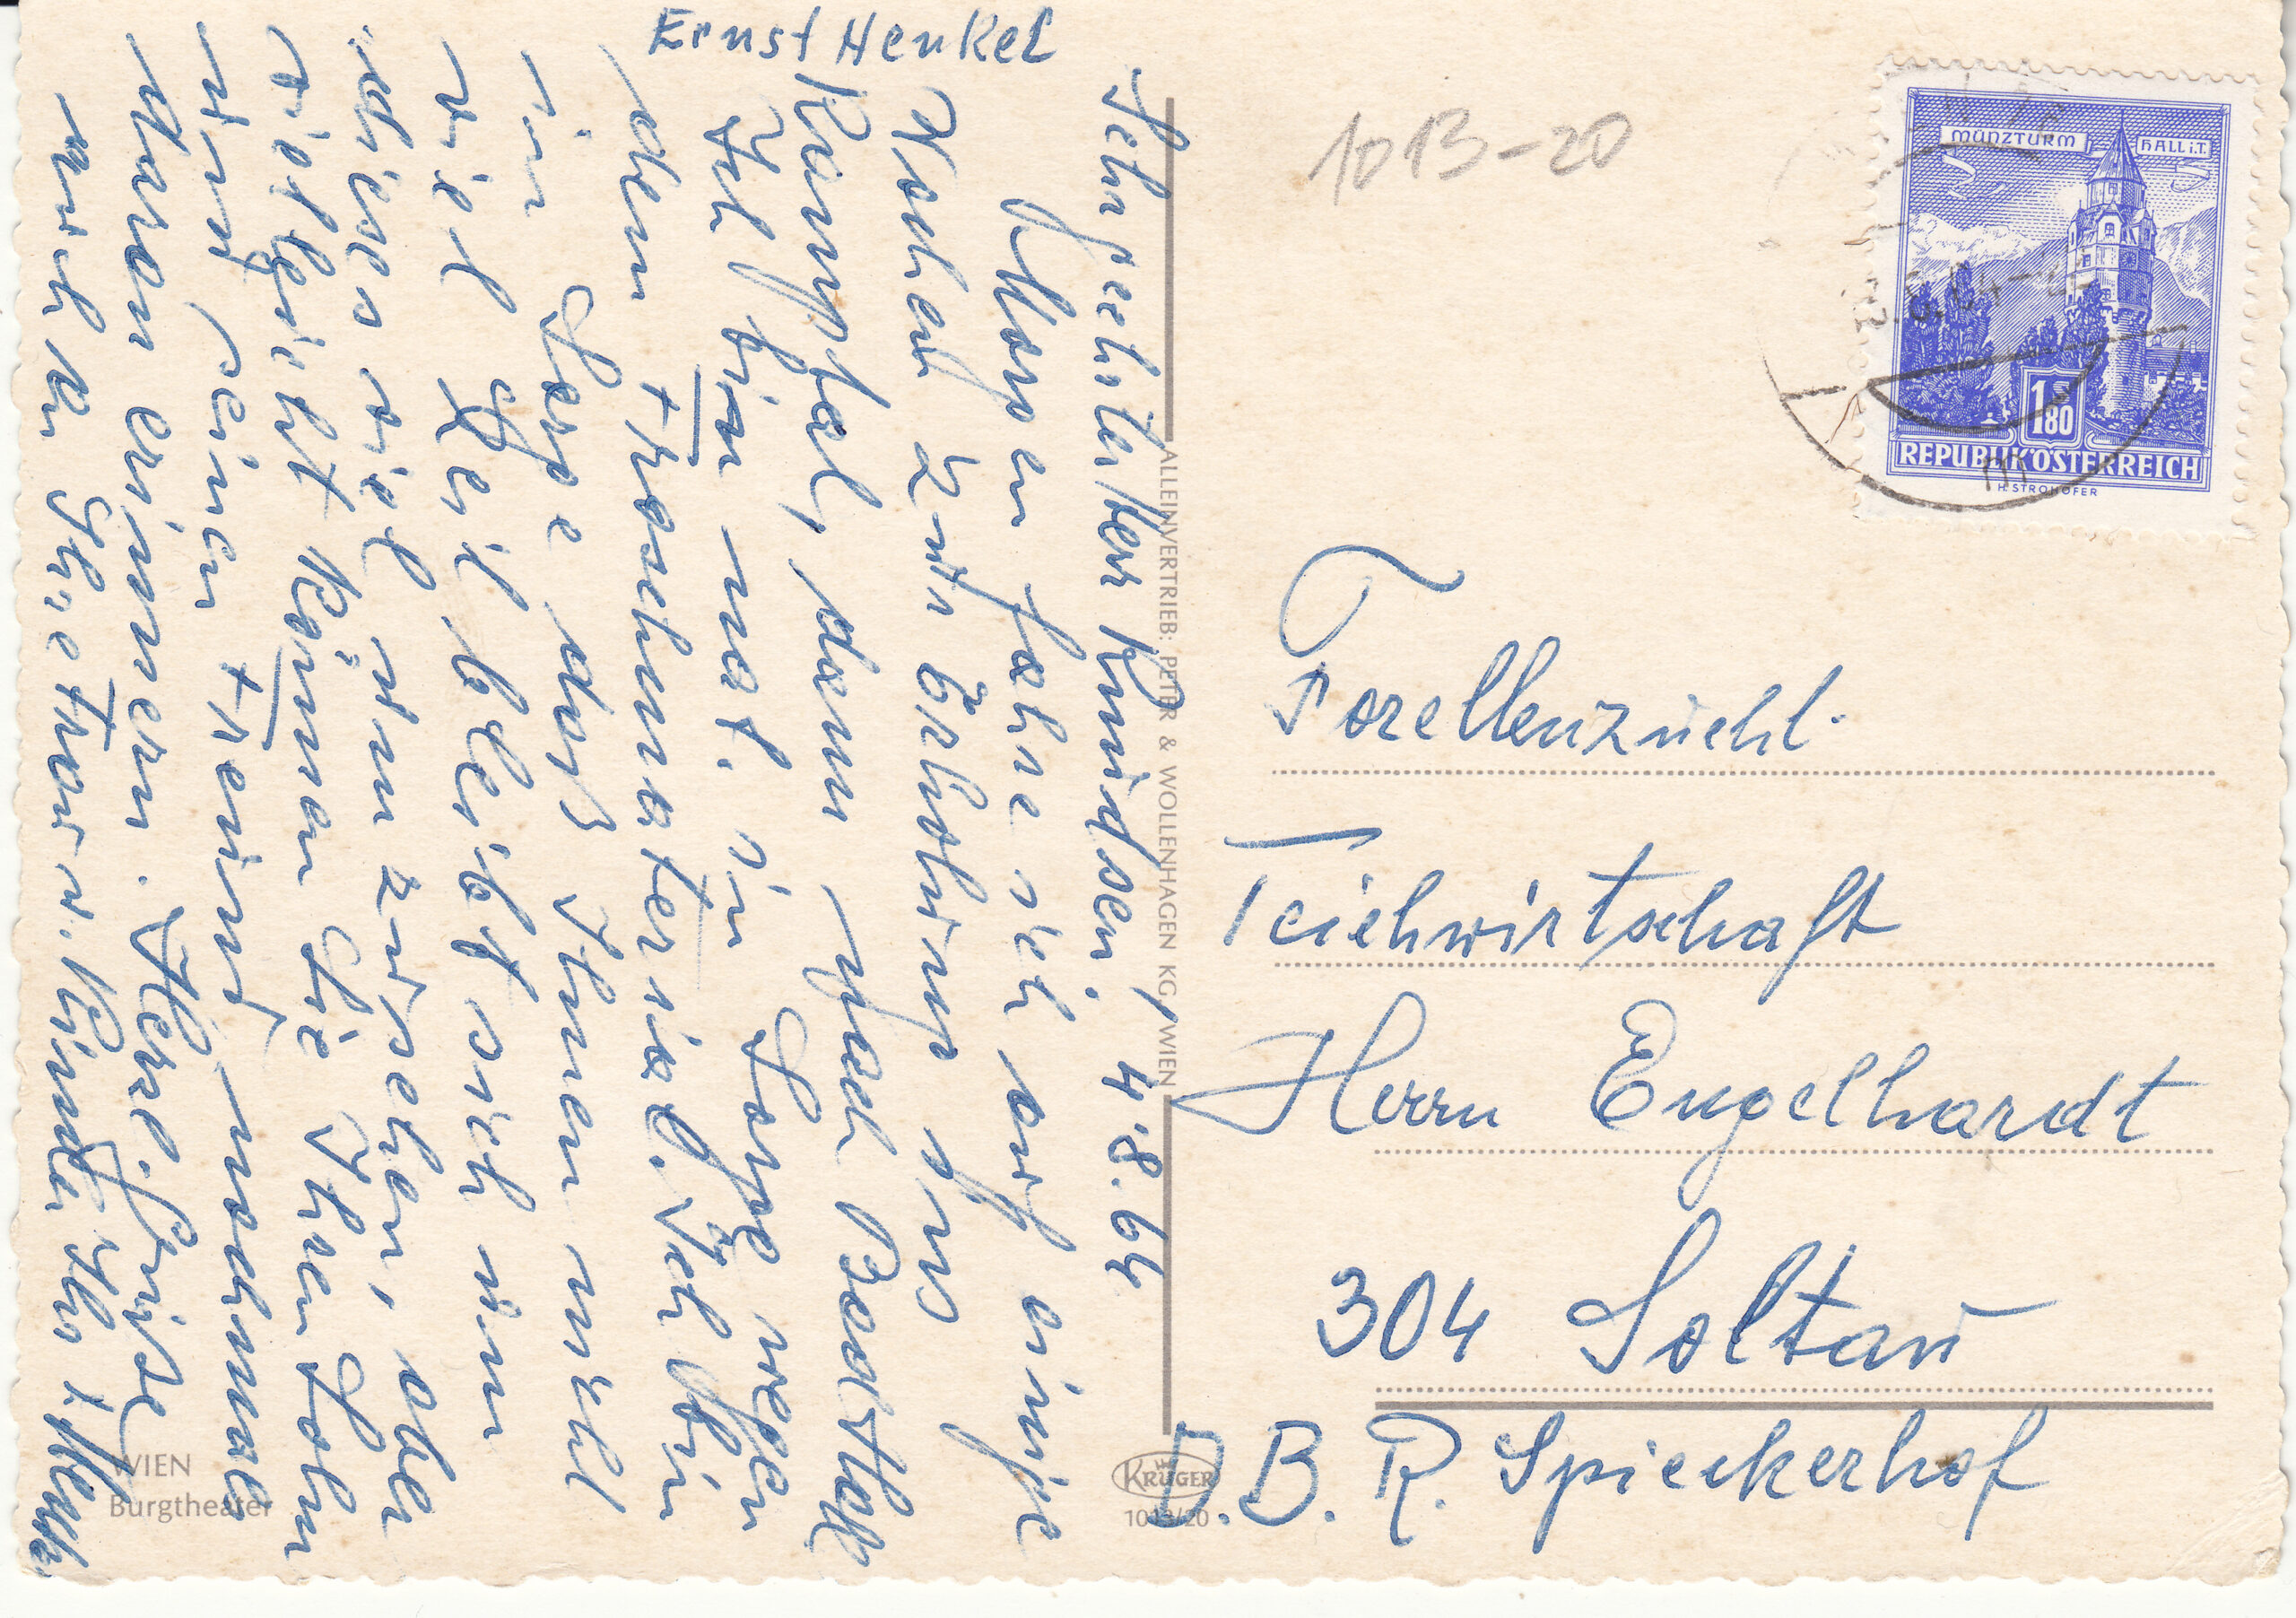 Ernst Henkel
Sehr geehrter Herr Knudsen, 4.8.64
Morgen fahre ich auf einige
Wochen zur Erholung ins
Kamptal, dann nach Bad Hall
Ich bin nat. in Sorge wegen
dem Froschmaterial. Ich bin
in Sorge daß Ihnen nicht
viel Zeit bleibt sich um
dieses viel umzusehen, aber
vielleicht können Sie Ihren Sohn
und seinen Freund nochmal
daran erinnern. Herzl. Grüße
auch an Ihre Frau u. Kinder Ihr E. Henkel
WIEN
Burgtheater
ALLEINVERTRIEB: PETER & WOLLENHAGEN KG, WIEN
KRÜGER
1013/20
1013-20
MÜNZTURM HALL i.T.
1.80
REPUBLIK ÖSTERREICH
H. STROHOFER
Forellenzucht
Teichwirtschaft
Herrn Engelhardt
304 Soltau
D.B.R. Spieckerhof